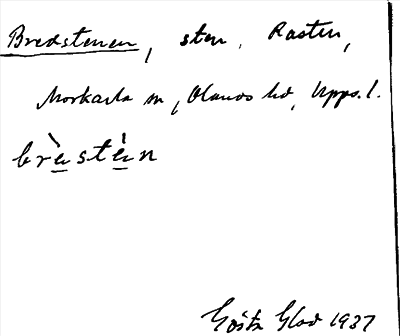 Bredstenen, sten, Rasten,
Morkarla sn, Olands hd, Upps. l.
brèstèn
Gösta Glad 1937